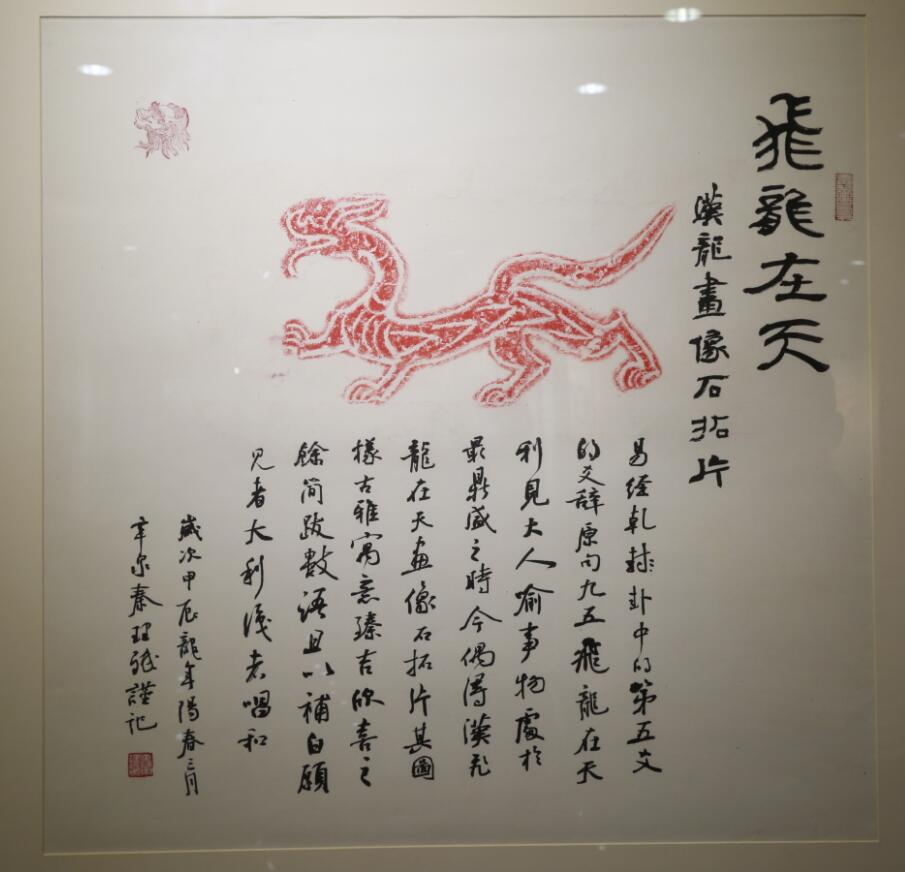 飛龍在天
漢龍畫像石拓片
易經乾卦卦中的第五爻
的爻辭原句九五飛龍在天
利見大人喻事物處於
最鼎盛之時今偶得漢飛
龍在天畫像石拓片其圖
樣古雅寓意臻吉欣喜之
餘简跋数語且以補白願
見者大利識者唱和
歲次甲辰龍年陽春三月
秦理斌謹記